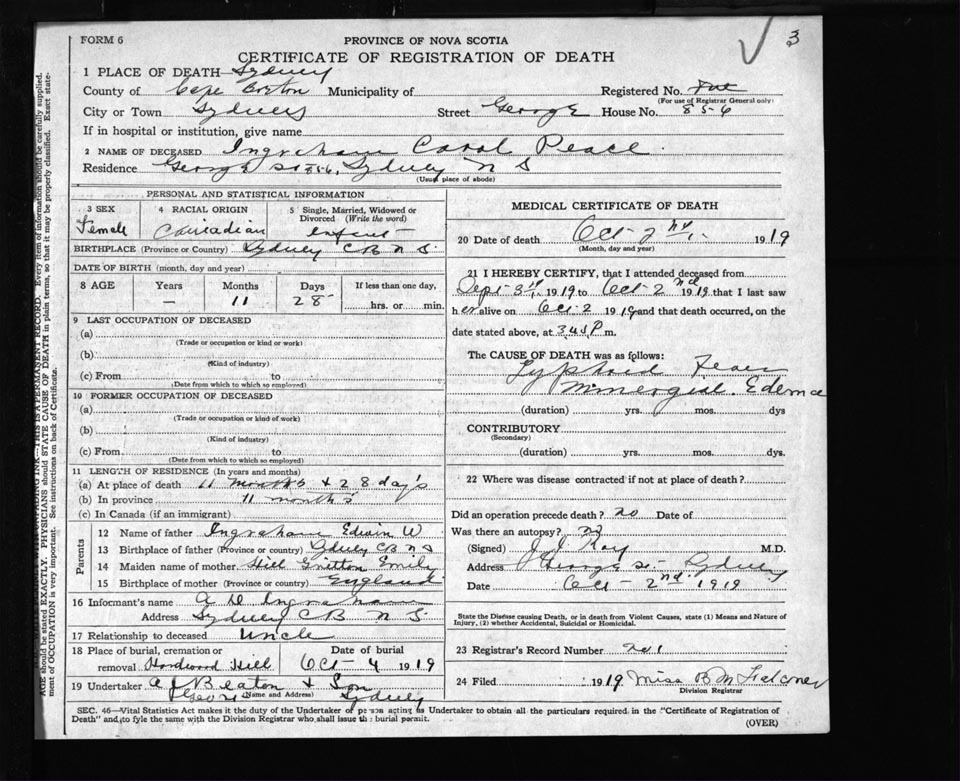 3
FORM 6
PROVINCE OF NOVA SCOTIA
CERTIFICATE OF REGISTRATION OF DEATH
1 PLACE OF DEATH Sydney
County of Cape Breton Municipality of Registered No.
(For use of Registrar General only)
City or Town Sydney Street George House No. 856
If in hospital or institution, give name
2 NAME OF DECEASED Ingraham Carol Peace
Residence George St 856, Sydney N S
(Usual place of abode)
PERSONAL AND STATISTICAL INFORMATION
3 SEX
Female
4 RACIAL ORIGIN
Canadian
5 Single, Married, Widowed or
Divorced (Write the word)
Infant
BIRTHPLACE (Province or Country) Sydney C B N S
DATE OF BIRTH (month, day and year)
8 AGE Years Months Days If less than one day,
— 11 28 hrs. or min.
9 LAST OCCUPATION OF DECEASED
(a)
(Trade or occupation or kind or work)
(b)
(Kind of industry)
(c) From to
(Date from which to which so employed)
10 FORMER OCCUPATION OF DECEASED
(a)
(Trade or occupation or kind of work)
(b)
(Kind of industry)
(c) From to
(Date from which to which so employed)
11 LENGTH OF RESIDENCE (In years and months)
(a) At place of death 11 months & 28 day's
(b) In province 11 months
(c) In Canada (if an immigrant)
Parents
12 Name of father Ingraham Edwin W
13 Birthplace of father (Province or country) Sydney C B N S
14 Maiden name of mother Hill Emily
15 Birthplace of mother (Province or country) England
16 Informant's name A D Ingraham
Address Sydney C B N S
17 Relationship to deceased Uncle
18 Place of burial, cremation or
removal Hardwood Hill
Date of burial
Oct 4 1919
19 Undertaker A J Beaton & Son
(Name and Address) Sydney
MEDICAL CERTIFICATE OF DEATH
20 Date of death Oct 2nd 1919
(Month, day and year)
21 I HEREBY CERTIFY, that I attended deceased from
Sept 1919 to Oct 2nd 1919 that I last saw
her alive on Oct 2 1919 and that death occurred, on the
date stated above, at 3.45 P m.
The CAUSE OF DEATH was as follows:
Typhoid Fever
Edema
(duration) yrs. mos. dys
CONTRIBUTORY
(Secondary)
(duration) yrs. mos. dys.
22 Where was disease contracted if not at place of death?
Did an operation precede death? no Date of
Was there an autopsy? no
(Signed) J J Roy M.D.
Address George St Sydney
Date Oct 2nd 1919
State the Disease causing Death, or in death from Violent Causes, state (1) Means and Nature of
Injury, (2) whether Accidental, Suicidal or Homicidal.
23 Registrar's Record Number 201
24 Filed 1919 Miss B M Falconer
Division Registrar
SEC. 46—Vital Statistics Act makes it the duty of the Undertaker or person acting as Undertaker to obtain all the particulars required in the "Certificate of Registration of
Death" and to fyle the same with the Division Registrar who shall issue the burial permit.
(OVER)